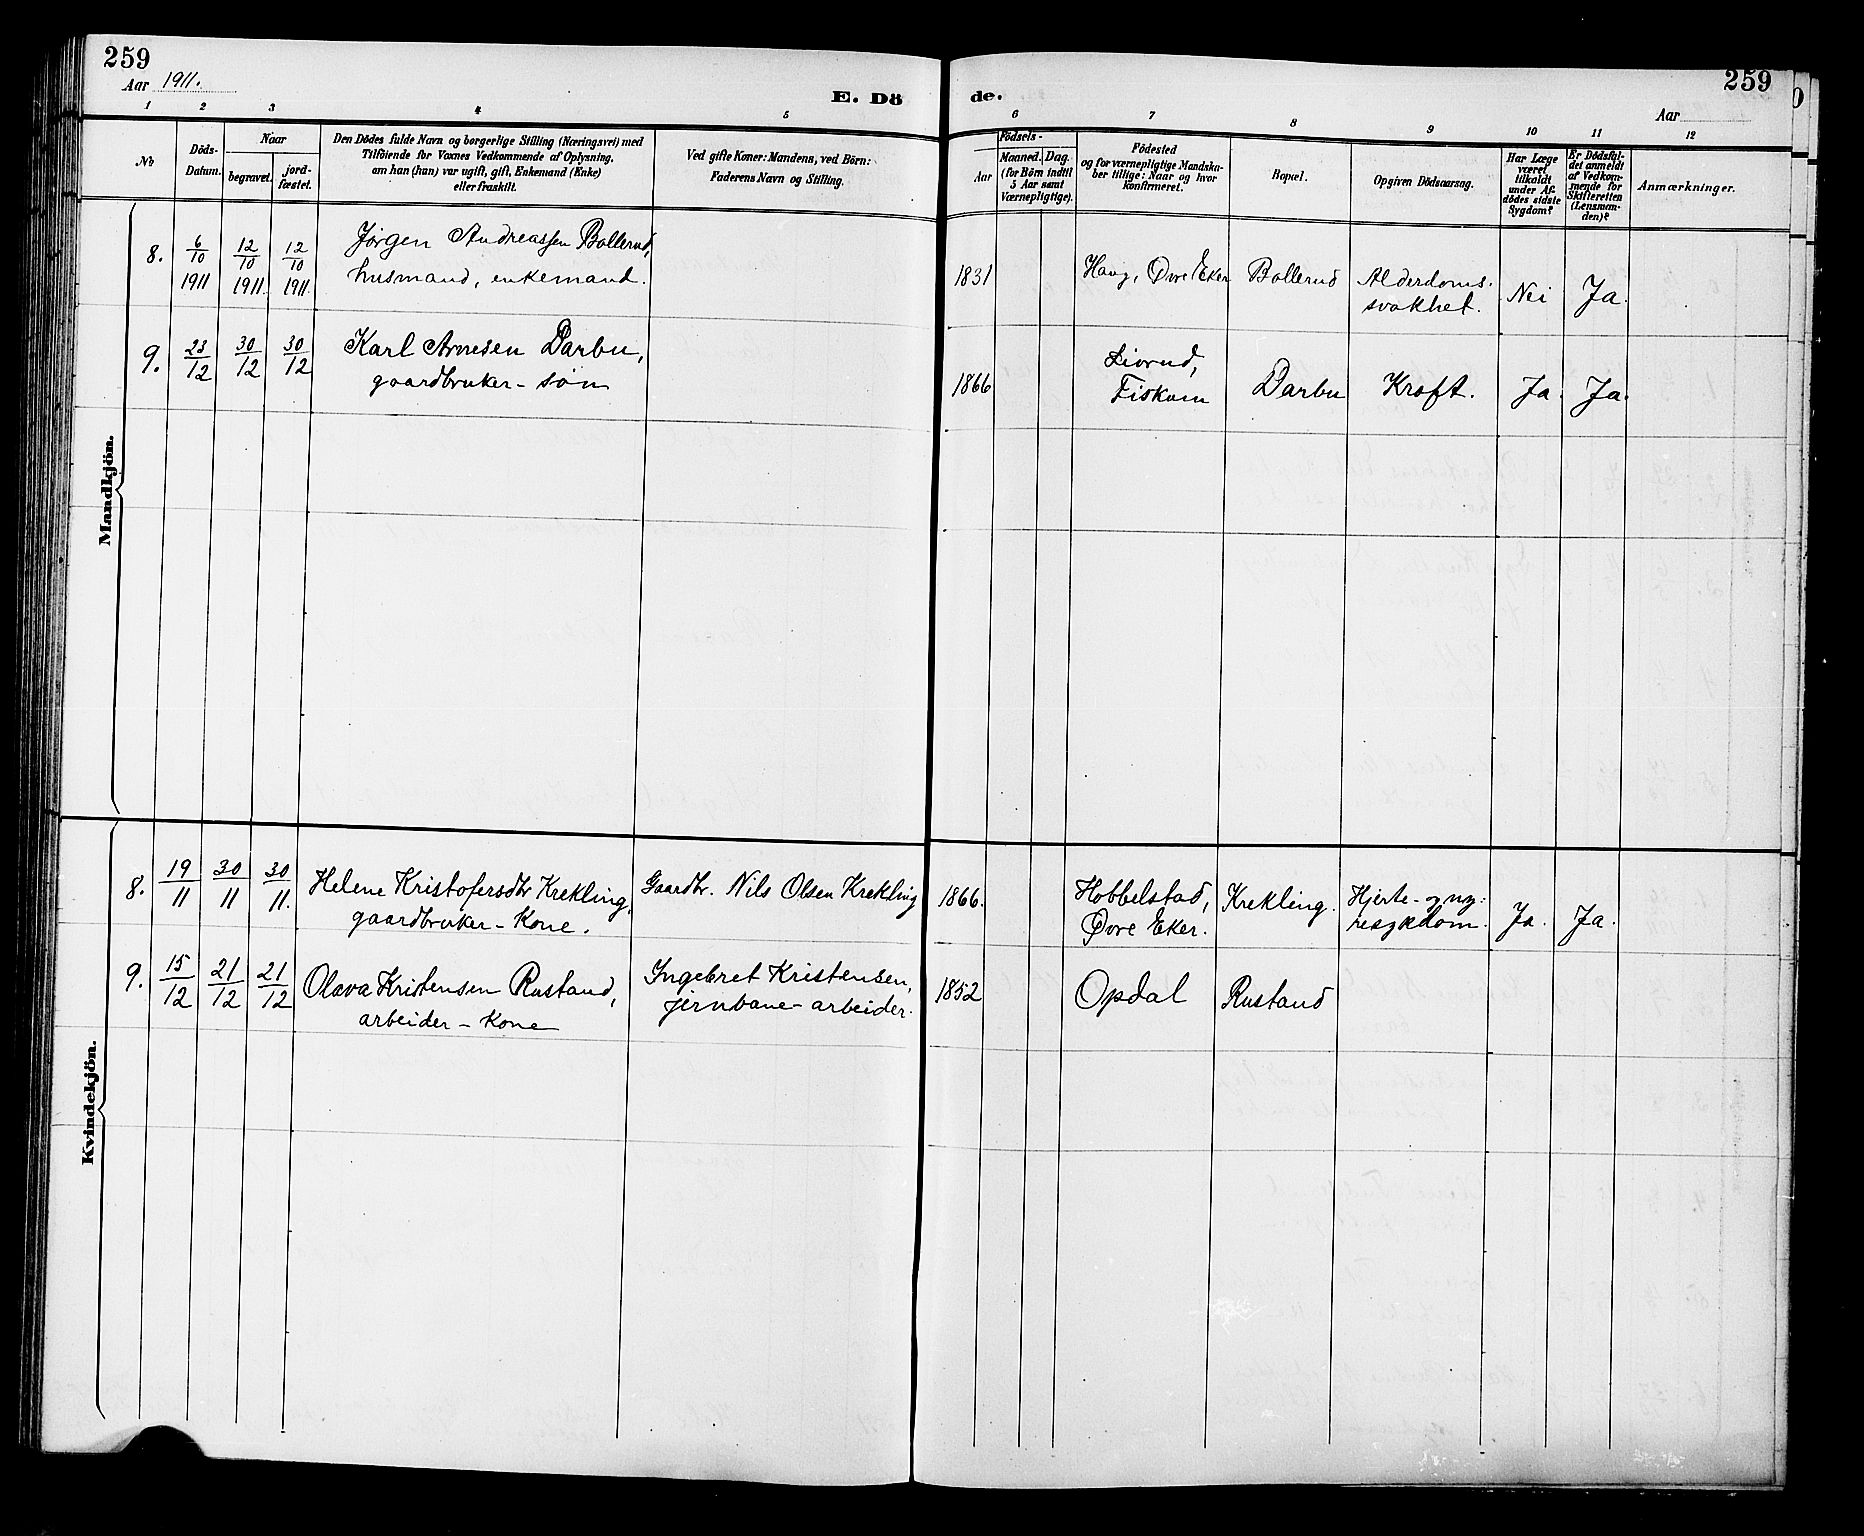 259
Aar 1911.
E. Dö
de.
259
Aar
1 2 3 4 5 6 7 8 9 10 11 12
No
Döds-
Datum.
Naar
begravet.
jord-
fæstet.
Den Dödes fulde Navn og borgerlige Stilling (Næringsvei) med
Tilföiende for Voxnes Vedkommende af Oplysning,
om han (hun) var ugift, gift, Enkemand (Enke)
eller fraskilt.
Ved gifte Koner: Mandens, ved Börn:
Faderens Navn og Stilling.
Födsels-
Aar
Maaned. Dag.
(for Börn indtil
5 Aar samt
Værnepligtige).
Födested
og for værnepligtige Mandska-
ber tillige: Naar og hvor
konfirmeret.
Bopæl.
Opgiven Dödsaarsag.
Har Læge
været
tilkaldt
under Af-
dödes sidste
Sygdom?
Er Dödsfal-
det anmeldt
af Vedkom-
mende for
Skifteretten
(Lensman-
den)?
Anmærkninger.
Mandkjön.
8. 6/10 1911 12/10 1911. 12/10 1911. Jørgen Andreassen Bollerud,
husmand, enkemand.
1831 Haug, Øvre Eker Bollerud Alderdoms-
svakhet. Nei Ja.
9. 23/12 30/12 30/12 Karl Arnesen Darbu,
gaardbruker-søn
1866 Liverud,
Fiskum Darbu Kræft. Ja. Ja.
Kvindekjön.
8. 19/11 30/11 30/11. Helene Kristofersdtr Krekling,
gaardbruker-Kone.
Gaardbr. Nils Olsen Krekling
1866. Hobbelstad,
Øvre Eker. Krekling. Hjerte- og ny-
resykdom. Ja. Ja.
9. 15/12 21/12 21/12 Olava Kristensen Rustand,
arbeider-Kone
Ingebret Kristensen,
jernbane-arbeider.
1852 Opdal Rustand